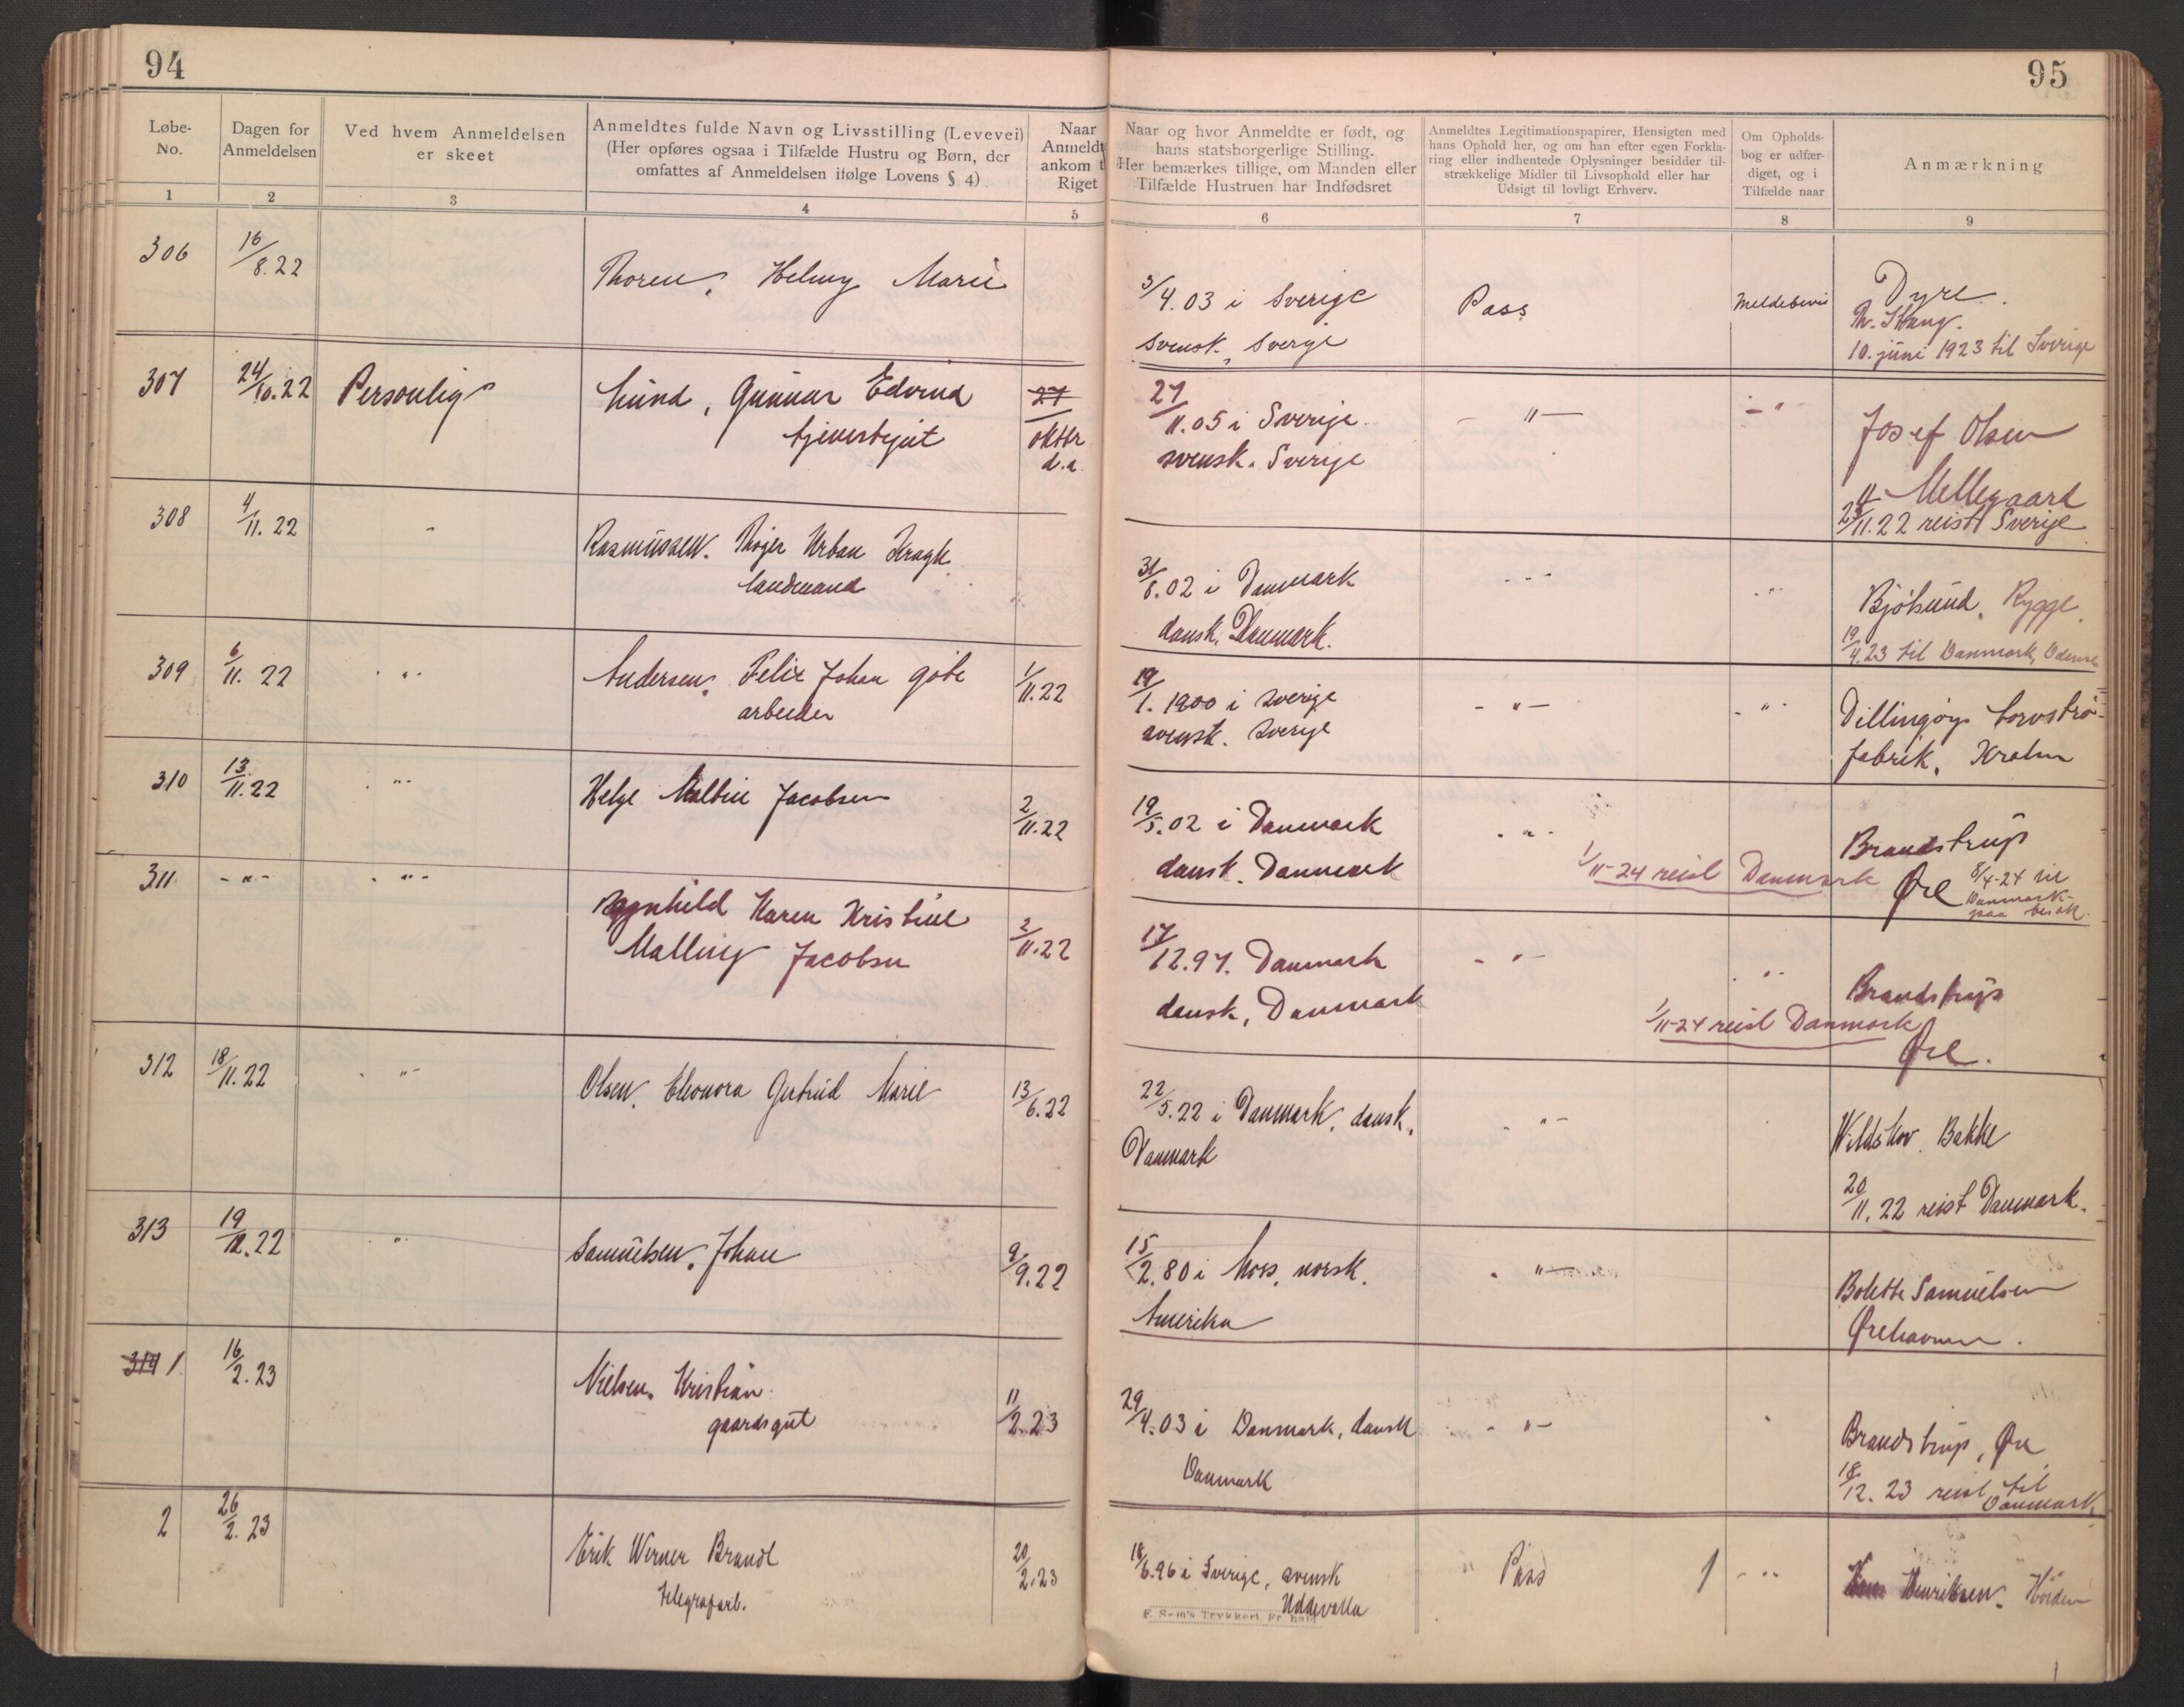 94
95
Løbe-
No.
Dagen for
Anmeldelsen
Ved hvem Anmeldelsen
er skeet
Anmeldtes fulde Navn og Livsstilling (Levevei)
(Her opføres ogsaa i Tilfælde Hustru og Børn, der
omfattes af Anmeldelsen ifølge Lovens § 4)
Naar
Anmeldt
ankom t
Riget
Naar og hvor Anmeldte er født, og
hans statsborgerlige Stilling.
Her bemærkes tillige, om Manden eller
Tilfælde Hustruen har Indfødsret
Anmeldtes Legitimationspapirer, Hensigten med
hans Ophold her, og om han efter egen Forkla-
ring eller indhentede Oplysninger besidder til-
strækkelige Midler til Livsophold eller har
Udsigt til lovligt Erhverv.
Om Opholds-
bog er udfær-
diget, og i
Tilfælde naar
Anmærkning
1 2 3 4 5 6 7 8 9
306
16/8.22
Thoren, Helmy Marie
3/4.03 i Sverige
svensk, Sverge
Pass
Meldebevis
Dyre.
Th. Skang.
10. juni 1923 til Sverige
307
24/10.22
Personlig
Lund, Gunnar Edvind
tjenestegut
27
oktbr
d.a.
27/11.05 i Sverige.
svensk. Sverige
- " -
- " -
Josef Olsen
Mellegaard
/11.22 reist Sverige
308
4/11.22
"
Rasmussen. Thöger Urban Kragh
landmand
31/8.02 i Danmark
dansk, Danmark.
- " -
- " -
Bjölsund, Rygge.
19/4.23 til Danmark, Odense
309
6/11.22
- " -
Andersen, Felix Johan Göte
arbeider
1/11.22
19/1.1900 i Sverige
svensk. Sverige
- " -
- " -
Dillingøy torvströ-
fabrik, Krohn
310
13/11.22
- " -
Helge Jacobsen
2/11.22
19/5.02 i Danmark
dansk. Danmark
- " -
1/11-24 reist Danmark
Brandstrup
Øre
8/4-24 til
Danmark-
paa besøk.
311
- " -
- " -
Ragnhild Karen Kristine
Malling Jacobsen
2/11.22
17/12.97. Danmark
dansk, Danmark
- " -
- " -
Brandstrup
1/11-24 reist Danmark
Øre.
312
18/11.22
- " -
Olsen, Eleonora Gertrud Marie
13/6.22
22/5.22 i Danmark, dansk,
Danmark
- " -
Wildskov, Bakke
20/11.22 reist Danmark.
313
19/12.22
"
Samuelsen, Johan
9/9.22
15/2.80 i Moss, norsk.
Amerika
- " -
Bolette Samuelsen
Ørehavnen.
314 1
16/2.23
Nielsen, Kristian.
gaardsgut
11/2.23
29/4.03 i Danmark, dansk
Danmark
- " -
Brandstrup, Øre
18/12.23 reist til
Danmark
2
26/2.23
Erik Werner Brandt
telegrafarb.
20/2.23
18/6.96 i Sverige, svensk
Uddevalla
Pass
1
- " -
Henriksen. Höiden
E Sem's Trykkeri Fr hald